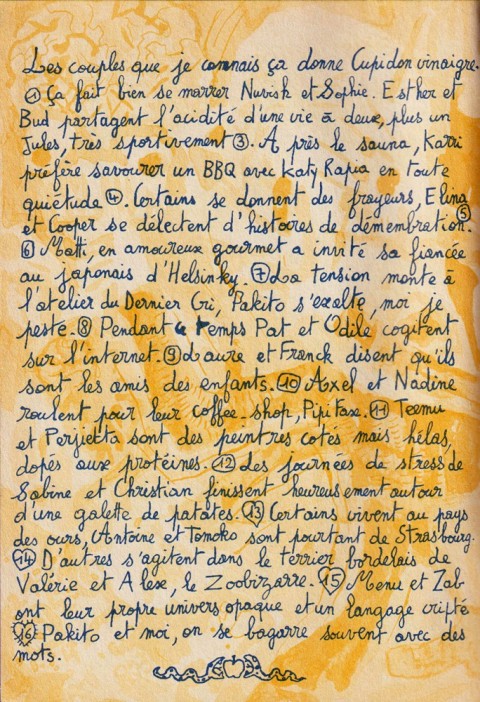 Les couples que je connais ça donne Cupidon vinaigre.
① Ça fait bien se marrer Nuvish et Sophie. Esther et
Bud partagent l'acidité d'une vie à deux, plus un
Jules, très sportivement ③. Après le sauna, Karri
préfère savourer un BBQ avec Katy Rapia en toute
quiétude ④. Certains se donnent des frayeurs, Elina
et Cooper se délectent d'histoires de démembration ⑤.
⑥ Matti, en amoureux gourmet a invité sa fiancée
au japonais d'Helsinky. ⑦ La tension monte à
l'atelier du Dernier Cri, Pakito s'exalte, moi je
peste. ⑧ Pendant ce temps Pat et Odile cogitent
sur l'internet. ⑨ Laure et Franck disent qu'ils
sont les amis des enfants. ⑩ Axel et Nadine
roulent pour leur coffee-shop, Pipifax. ⑪ Teemu
et Perjietta sont des peintres cotés mais hélas,
dopés aux protéines. ⑫ Les journées de stress de
Sabine et Christian finissent heureusement autour
d'une galette de patates. ⑬ Certains vivent au pays
des ours, Antoine et Tomoko sont pourtant de Strasbourg.
⑭ D'autres s'agitent dans le terrier bordelais de
Valérie et Alex, le Zoobizarre. ⑮ Menu et Zab
ont leur propre univers opaque et un langage crypté
⑯ Pakito et moi, on se bagarre souvent avec des
mots.